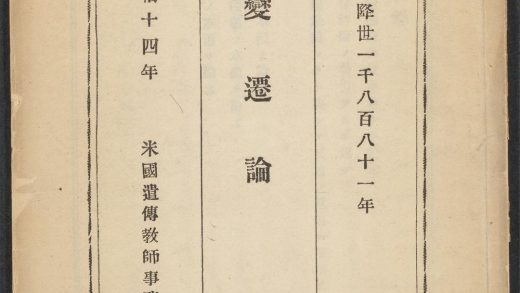 降世一千八百八十一年
變遷論
十四年　米國遣傳教師事